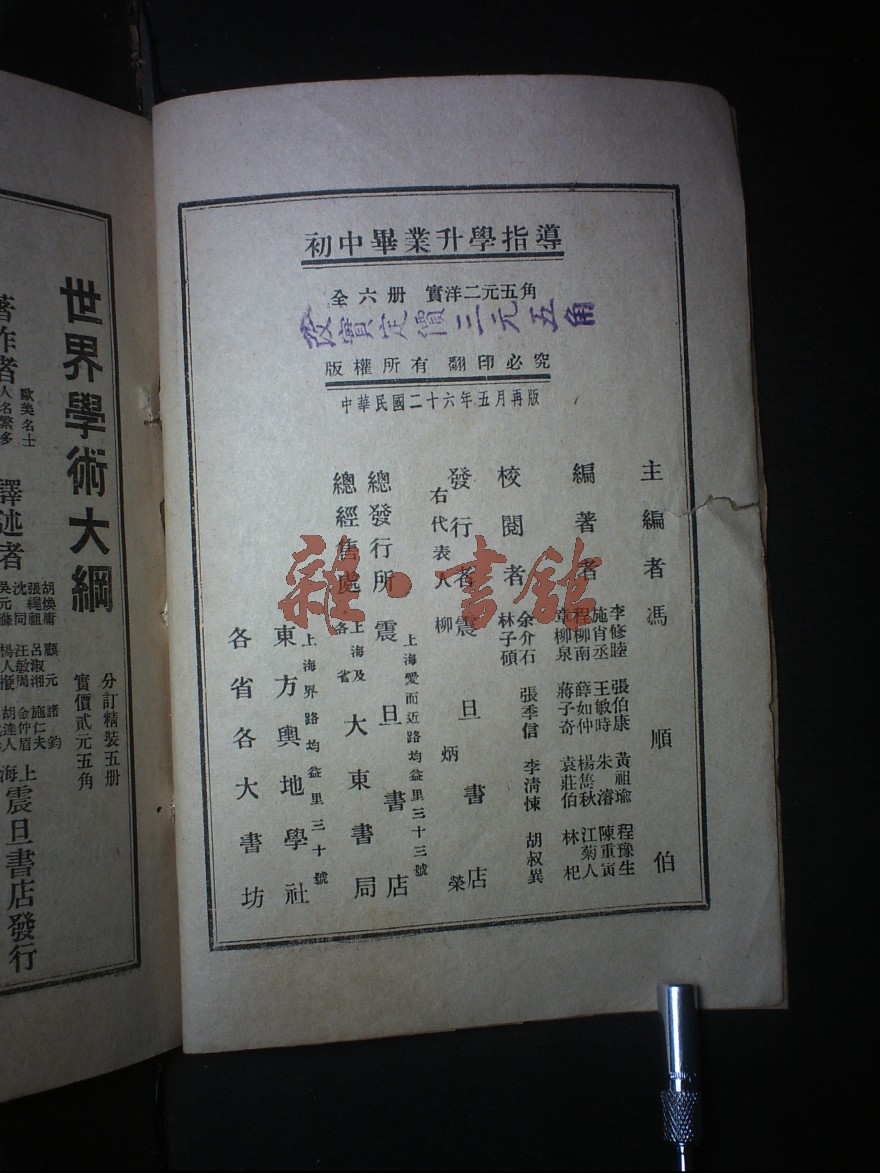 初中畢業升學指導
全六册 實洋二元五角
改實定價三元五角
版權所有 翻印必究
中華民國二十六年五月再版
主編者 馮順伯
編著者
李修睦 張伯康 黃祖瑜 程豫生
施肖丞 王敏時 朱濬 陳重寅
程柳南 薛如仲 楊雋秋 江菊人
章柳泉 蔣子奇 袁莊伯 林杞
校閱者
余介石 張季信 李清悚 胡叔異
林子碩
發行者 震旦書店
右代表人 柳炳榮
上海愛而近路均益里三十三號
總發行所 震旦書店
總經售處 上海及各省 大東書局
上海界路均益里三十號
東方輿地學社
各省各大書坊
雜·書館
世界學術大綱
分訂精裝五册
實價貳元五角
著作者
歐美名士
人名繁多
譯述者
胡煥庸 顧元 諸鈞
張祖 呂湘 施仁夫
沈同 汪敏周 金仲眉
上海震旦書店發行